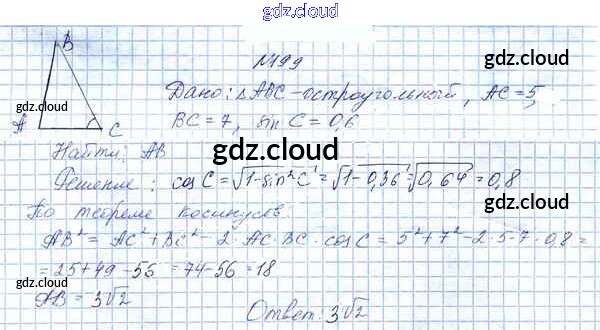 gdz.cloud
B
№199
gdz.cloud
Дано: △ABC - остроугольный, AC = 5,
gdz.cloud
A
C
BC = 7, sin C = 0,6
gdz.cloud
Найти: AB
gdz.cloud
Решение: cos C = √1-sin²C = √1-0,36 = √0,64 = 0,8
По теореме косинусов:
AB² = AC² + BC² - 2·AC·BC·cos C = 5²+7²-2·5·7·0,8 =
= 25+49-56 = 74-56 = 18
AB = 3√2
gdz.cloud
gdz.cloud
Ответ: 3√2